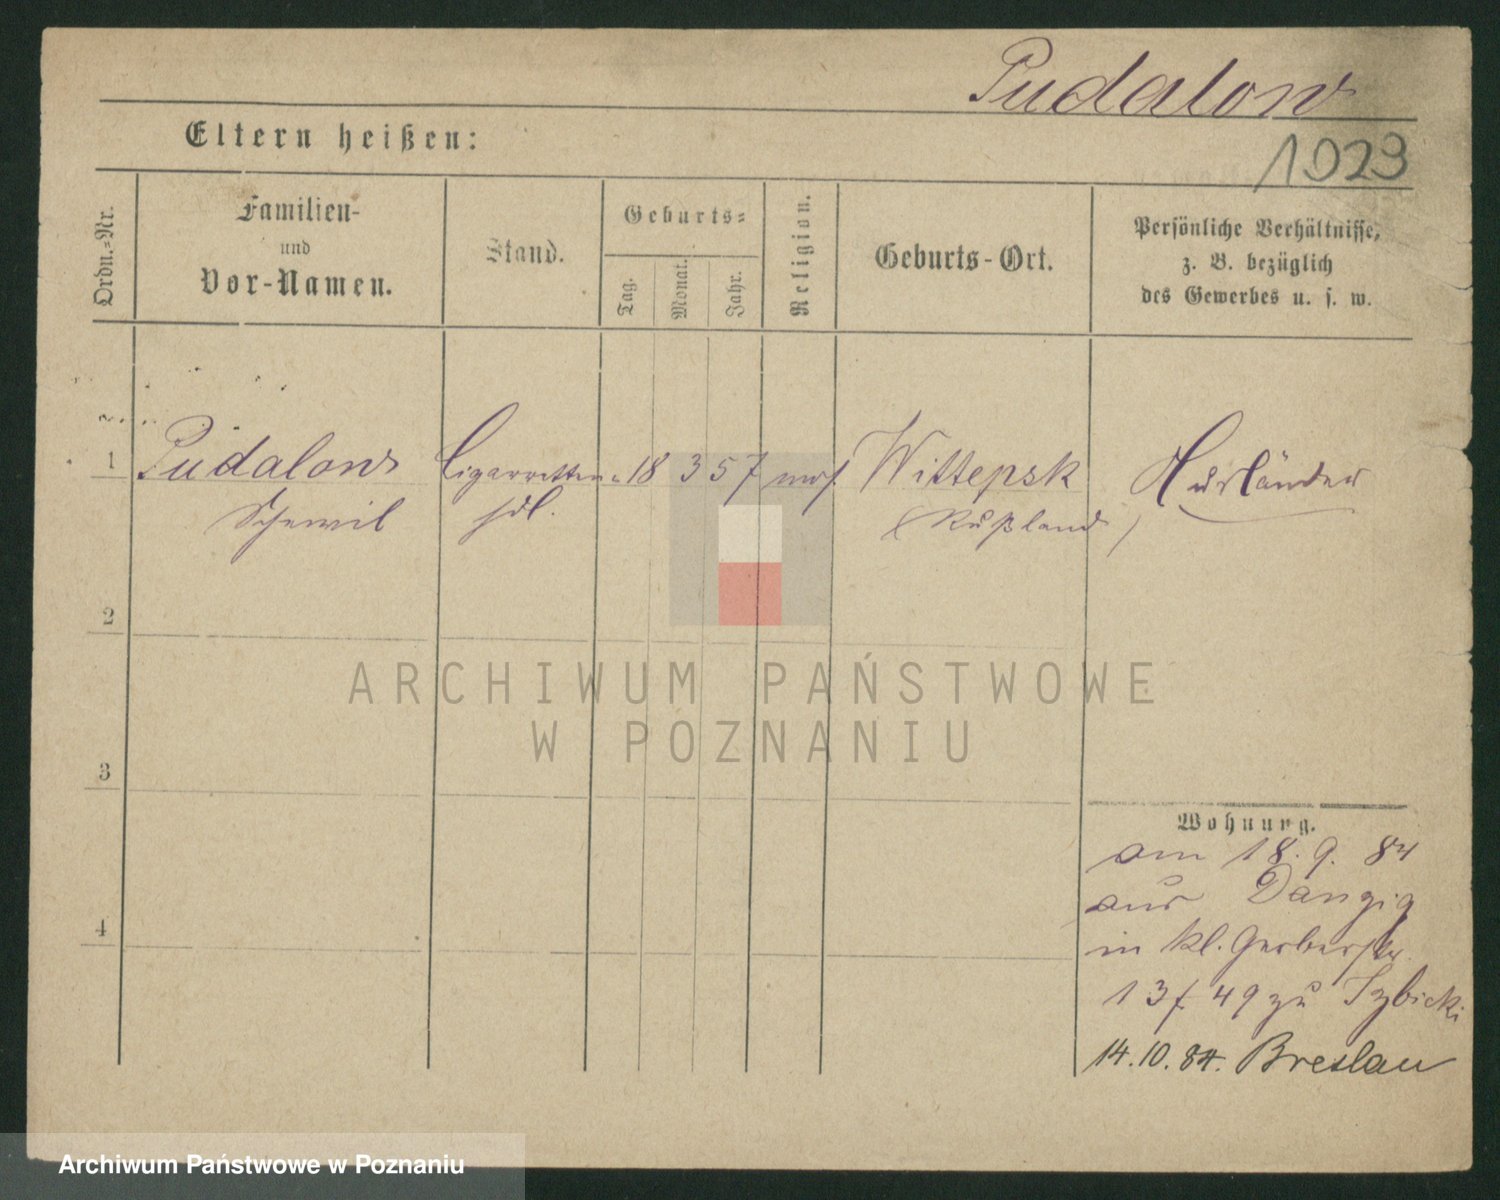 Pudalow
1023
Eltern heißen:
Ordn.-Nr.
Familien-
und
Vor-Namen.
Stand.
Geburts-
Tag.
Monat.
Jahr.
Religion.
Geburts-Ort.
Persönliche Verhältnisse,
z. B. bezüglich
des Gewerbes u. s. w.
1 Pudalow Cigarretten- 18 3 57 mos. Wittepsk Ausländer
hdl. (Rußland)
2
ARCHIWUM PAŃSTWOWE
W POZNANIU
3
Wohnung.
am 18. 9. 84
aus Danzig
4
in kl. Gerberstr.
13 49 zu
14. 10. 84. Breslau
Archiwum Państwowe w Poznaniu